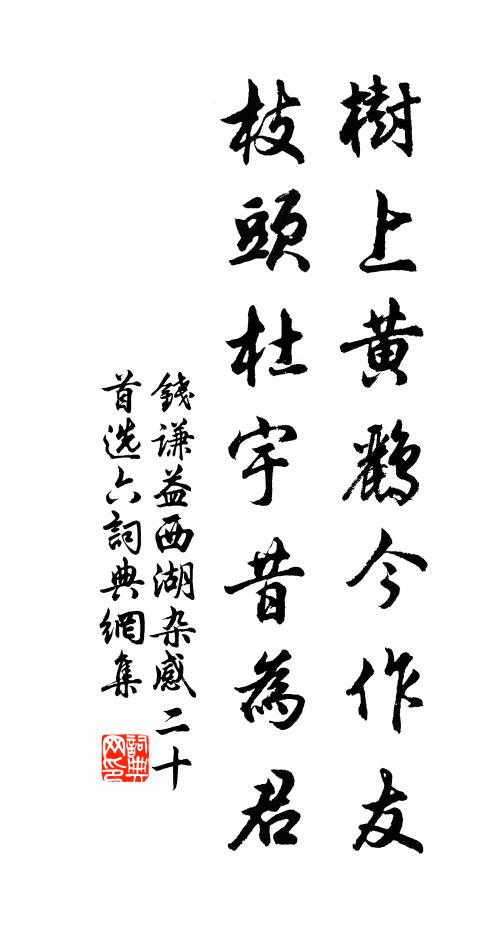 樹上黄鸝今作友
枝頭杜宇昔為君
錢謙益西湖杂感二十
首选六詞典網集
詞典
网印